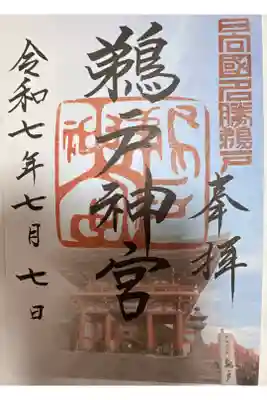 日向國名勝鵜戸
奉拝
鵜戸神宮
令和七年七月七日